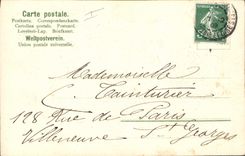 Carte postale.
Postkarte. Correspondenzkarte.
Cartolina postale. Postcard.
Levelező-Lap. Briefkaart.
Weltpostverein.
Union postale universelle.
Mademoiselle
Tainturier
128 Rue de Paris
Villeneuve St Georges